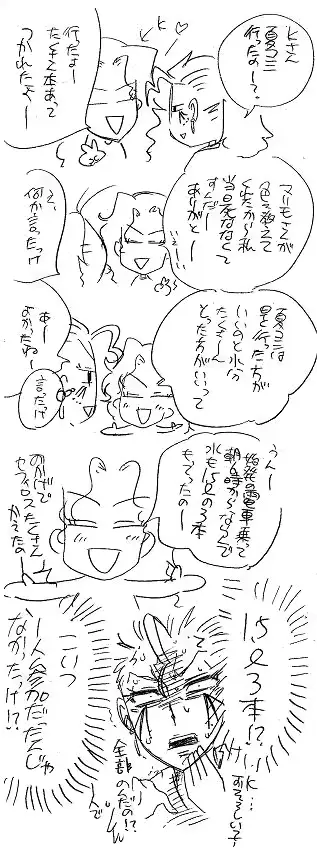 Kさん
夏コミ
行ったの〜?
K
行たよー
たくさん本あって
つかれたよー
マリモさんが
色々教えて
くれたから私
当日死ななくて
すんだー
ありがとー
え、
何か言たっけ
夏コミは
早く行った方が
いいのと水分
たくさ〜ん
とった方がいいって
あー
よかったねー
言たっけ
うんー
始発の電車乗って
朝6時からならんで
水も1.5ℓの3本
もってったのー
おかげで
セフィロスたくさん
かえたの
1.5ℓ
3本!?
こいつ
一人参加だったんじゃ
なかったっけ!?
K…
おそろしい子!
全部
のんだの!?